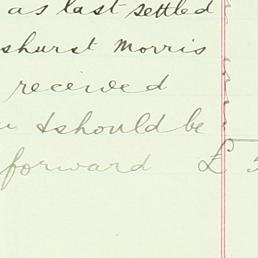 as last settled
shurst Morris
received
& should be
forward £